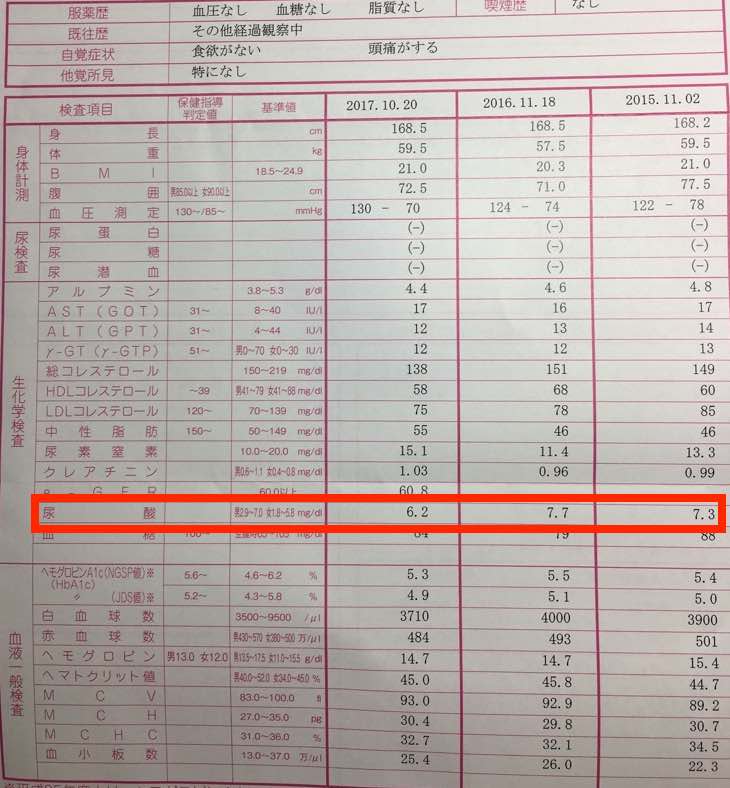 服薬歴 血圧なし 血糖なし 脂質なし 喫煙歴 なし
既往歴 その他経過観察中
自覚症状 食欲がない 頭痛がする
他覚所見 特になし
検査項目 保健指導判定値 基準値 2017.10.20 2016.11.18 2015.11.02
身体計測
身長 cm 168.5 168.5 168.2
体重 kg 59.5 57.5 59.5
BMI 18.5~24.9 21.0 20.3 21.0
腹囲 男85.0以上 女90.0以上 cm 72.5 71.0 77.5
血圧測定 130~/85~ mmHg 130 - 70 124 - 74 122 - 78
尿検査
尿蛋白 (-) (-) (-)
尿糖 (-) (-) (-)
尿潜血 (-) (-) (-)
生化学検査
アルブミン 3.8~5.3 g/dl 4.4 4.6 4.8
AST(GOT) 31~ 8~40 IU/l 17 16 17
ALT(GPT) 31~ 4~44 IU/l 12 13 14
γ-GT(γ-GTP) 51~ 男0~70 女0~30 IU/l 12 12 13
総コレステロール 150~219 mg/dl 138 151 149
HDLコレステロール ~39 男41~79 女41~88 mg/dl 58 68 60
LDLコレステロール 120~ 70~139 mg/dl 75 78 85
中性脂肪 150~ 50~149 mg/dl 55 46 46
尿素窒素 10.0~20.0 mg/dl 15.1 11.4 13.3
クレアチニン 男0.6~1.1 女0.4~0.8 mg/dl 1.03 0.96 0.99
e-GFR 60.0以上 60.8
尿酸 男2.9~7.0 女1.8~5.8 mg/dl 6.2 7.7 7.3
血糖 100~ mg/dl 84 79 88
血液一般検査
ヘモグロビンA1c(NGSP値)※ 5.6~ 4.6~6.2 % 5.3 5.5 5.4
(HbA1c) 〃 (JDS値)※ 5.2~ 4.3~5.8 % 4.9 5.1 5.0
白血球数 3500~9500 /μl 3710 4000 3900
赤血球数 男430~570 女380~500 万/μl 484 493 501
ヘモグロビン 男13.0 女12.0 男13.5~17.5 女11.0~15.5 g/dl 14.7 14.7 15.4
ヘマトクリット値 男40.0~52.0 女34.0~45.0 % 45.0 45.8 44.7
MCV 83.0~100.0 fl 93.0 92.9 89.2
MCH 27.0~35.0 pg 30.4 29.8 30.7
MCHC 31.0~36.0 % 32.7 32.1 34.5
血小板数 13.0~37.0 万/μl 25.4 26.0 22.3